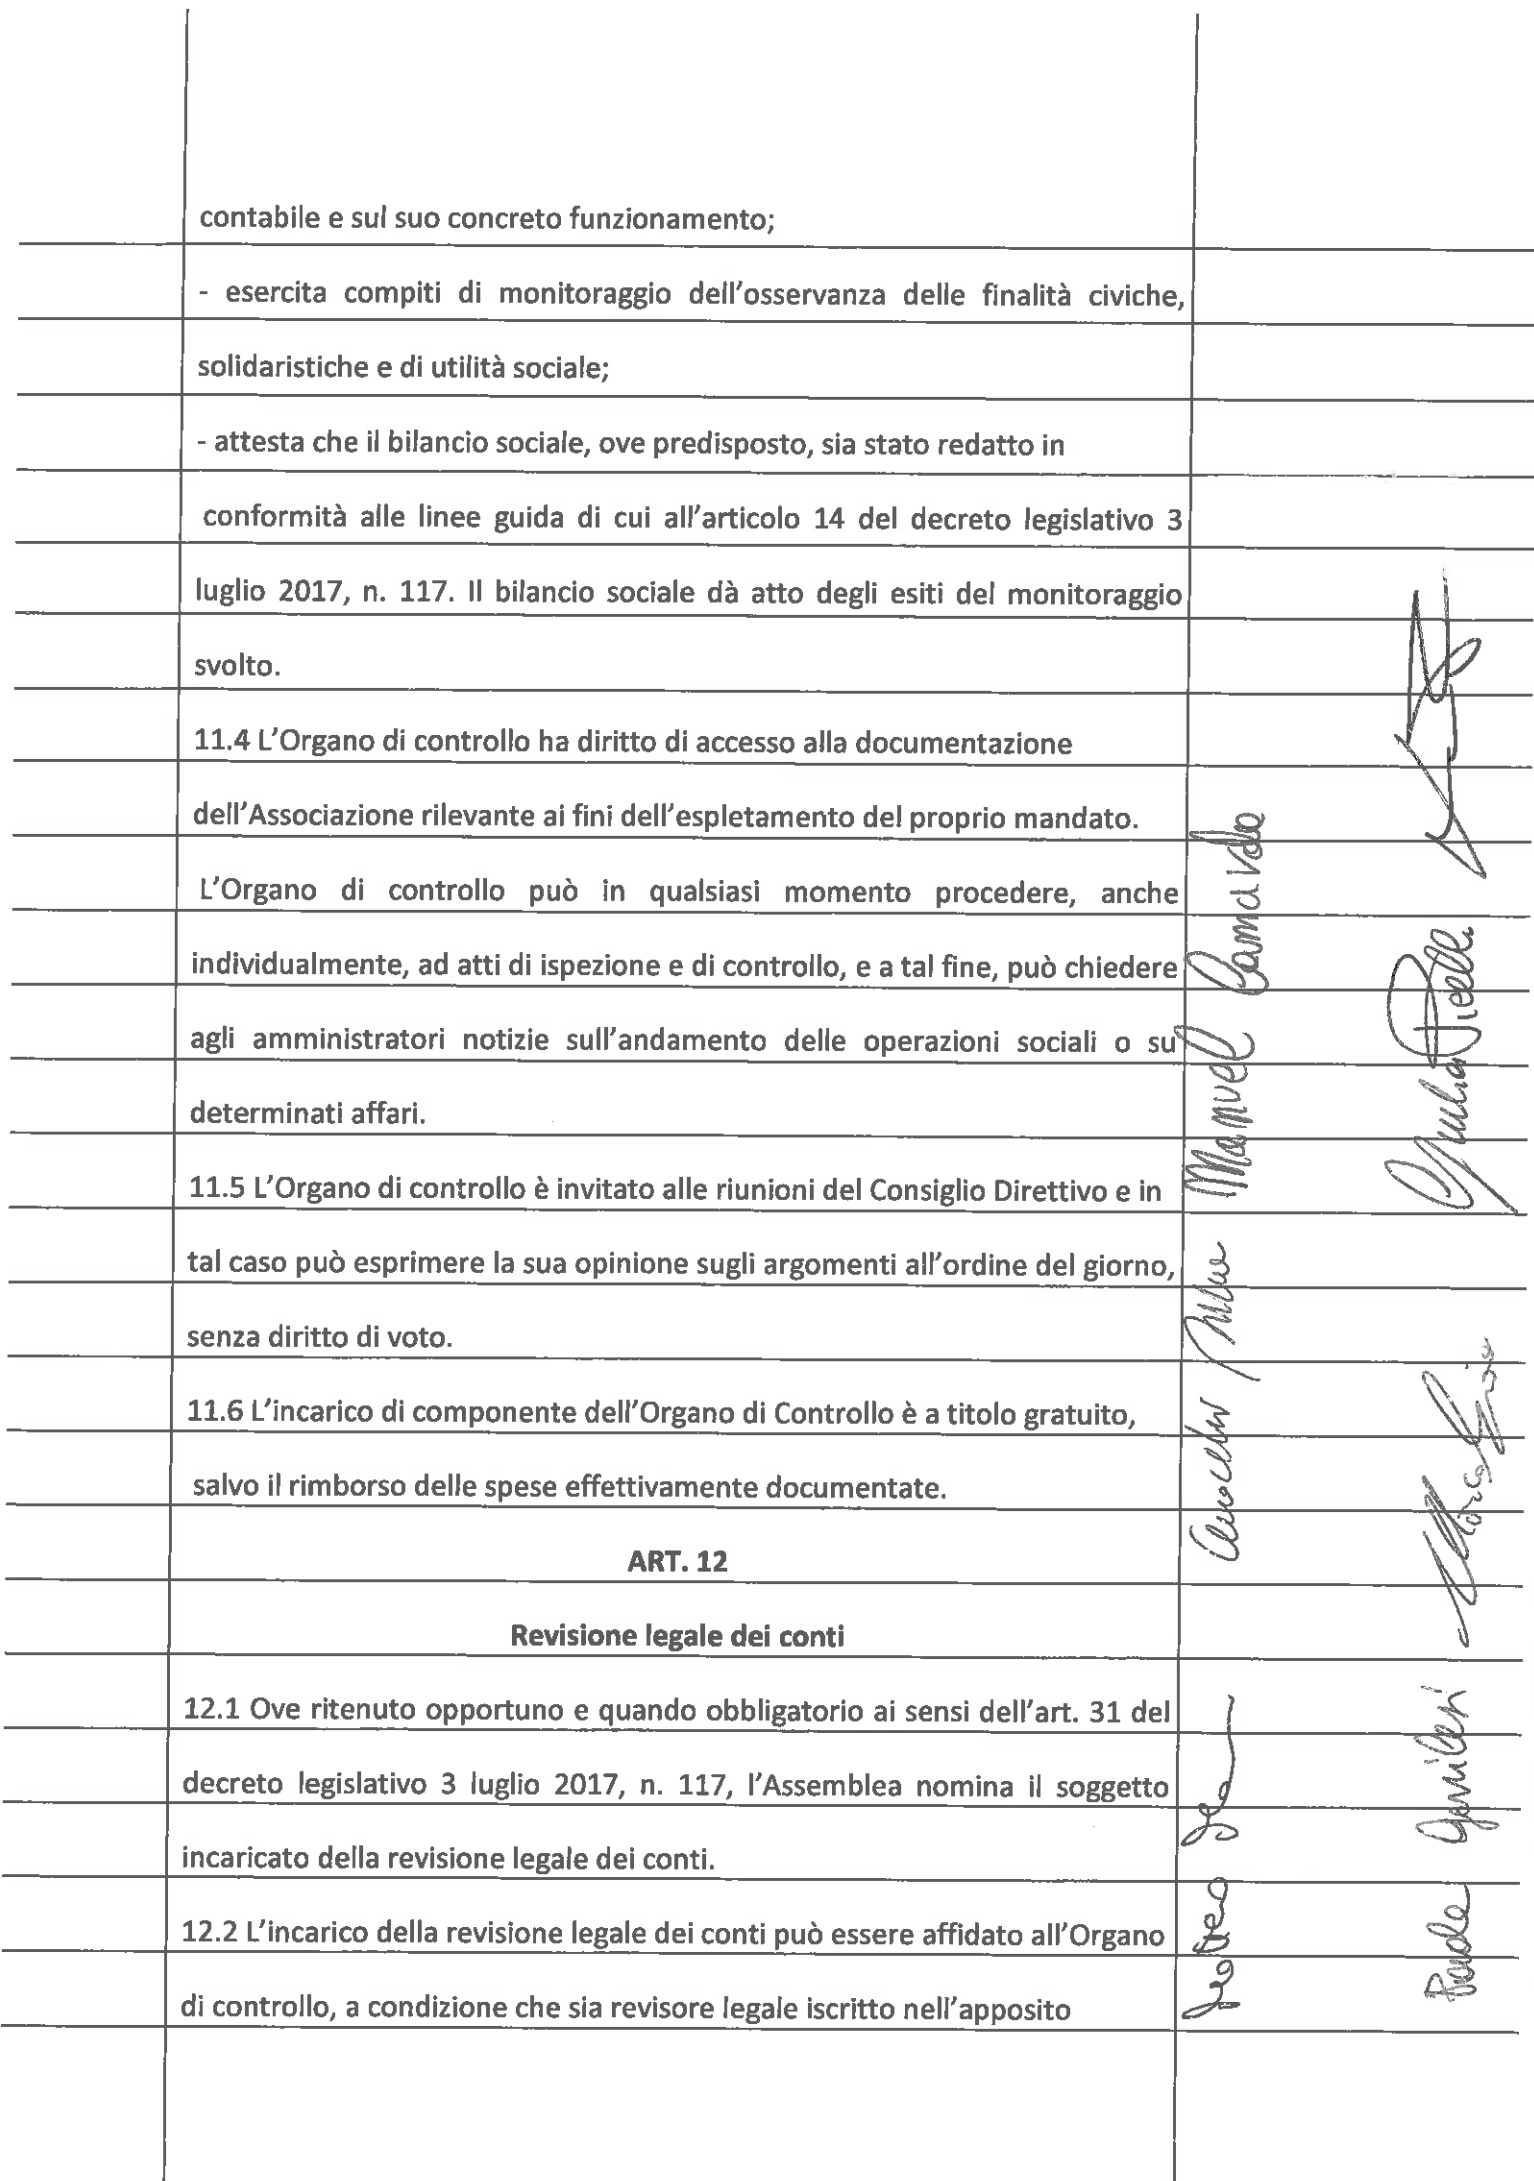 contabile e sul suo concreto funzionamento;
- esercita compiti di monitoraggio dell'osservanza delle finalità civiche,
solidaristiche e di utilità sociale;
- attesta che il bilancio sociale, ove predisposto, sia stato redatto in
conformità alle linee guida di cui all'articolo 14 del decreto legislativo 3
luglio 2017, n. 117. Il bilancio sociale dà atto degli esiti del monitoraggio
svolto.
11.4 L'Organo di controllo ha diritto di accesso alla documentazione
dell'Associazione rilevante ai fini dell'espletamento del proprio mandato.
L'Organo di controllo può in qualsiasi momento procedere, anche
individualmente, ad atti di ispezione e di controllo, e a tal fine, può chiedere
agli amministratori notizie sull'andamento delle operazioni sociali o su
determinati affari.
11.5 L'Organo di controllo è invitato alle riunioni del Consiglio Direttivo e in
tal caso può esprimere la sua opinione sugli argomenti all'ordine del giorno,
senza diritto di voto.
11.6 L'incarico di componente dell'Organo di Controllo è a titolo gratuito,
salvo il rimborso delle spese effettivamente documentate.
ART. 12
Revisione legale dei conti
12.1 Ove ritenuto opportuno e quando obbligatorio ai sensi dell'art. 31 del
decreto legislativo 3 luglio 2017, n. 117, l'Assemblea nomina il soggetto
incaricato della revisione legale dei conti.
12.2 L'incarico della revisione legale dei conti può essere affidato all'Organo
di controllo, a condizione che sia revisore legale iscritto nell'apposito
Manuel
Giulia